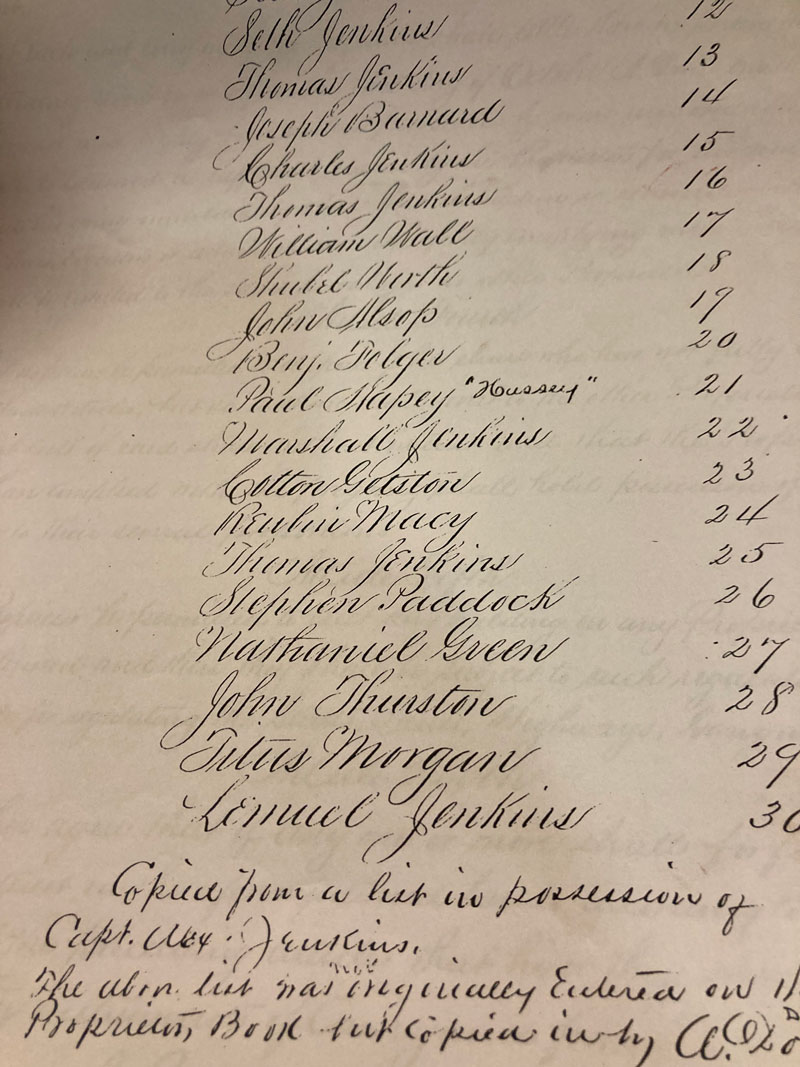 12
Seth Jenkins 13
Thomas Jenkins 14
Joseph Barnard 15
Charles Jenkins 16
Thomas Jenkins 17
William Wall 18
Shubel Worth 19
John Alsop 20
Benj. Folger 21
Paul Hapey "Hussey" 22
Marshall Jenkins 23
Cotton Gelston 24
Reubin Macy 25
Thomas Jenkins 26
Stephen Paddock 27
Nathaniel Green 28
John Thurston 29
Titus Morgan 30
Lemuel Jenkins
Copied from a list in possession of
Capt. Alex. Jenkins.
The above list was not originally Entered on
Proprietors Book but Copied in by